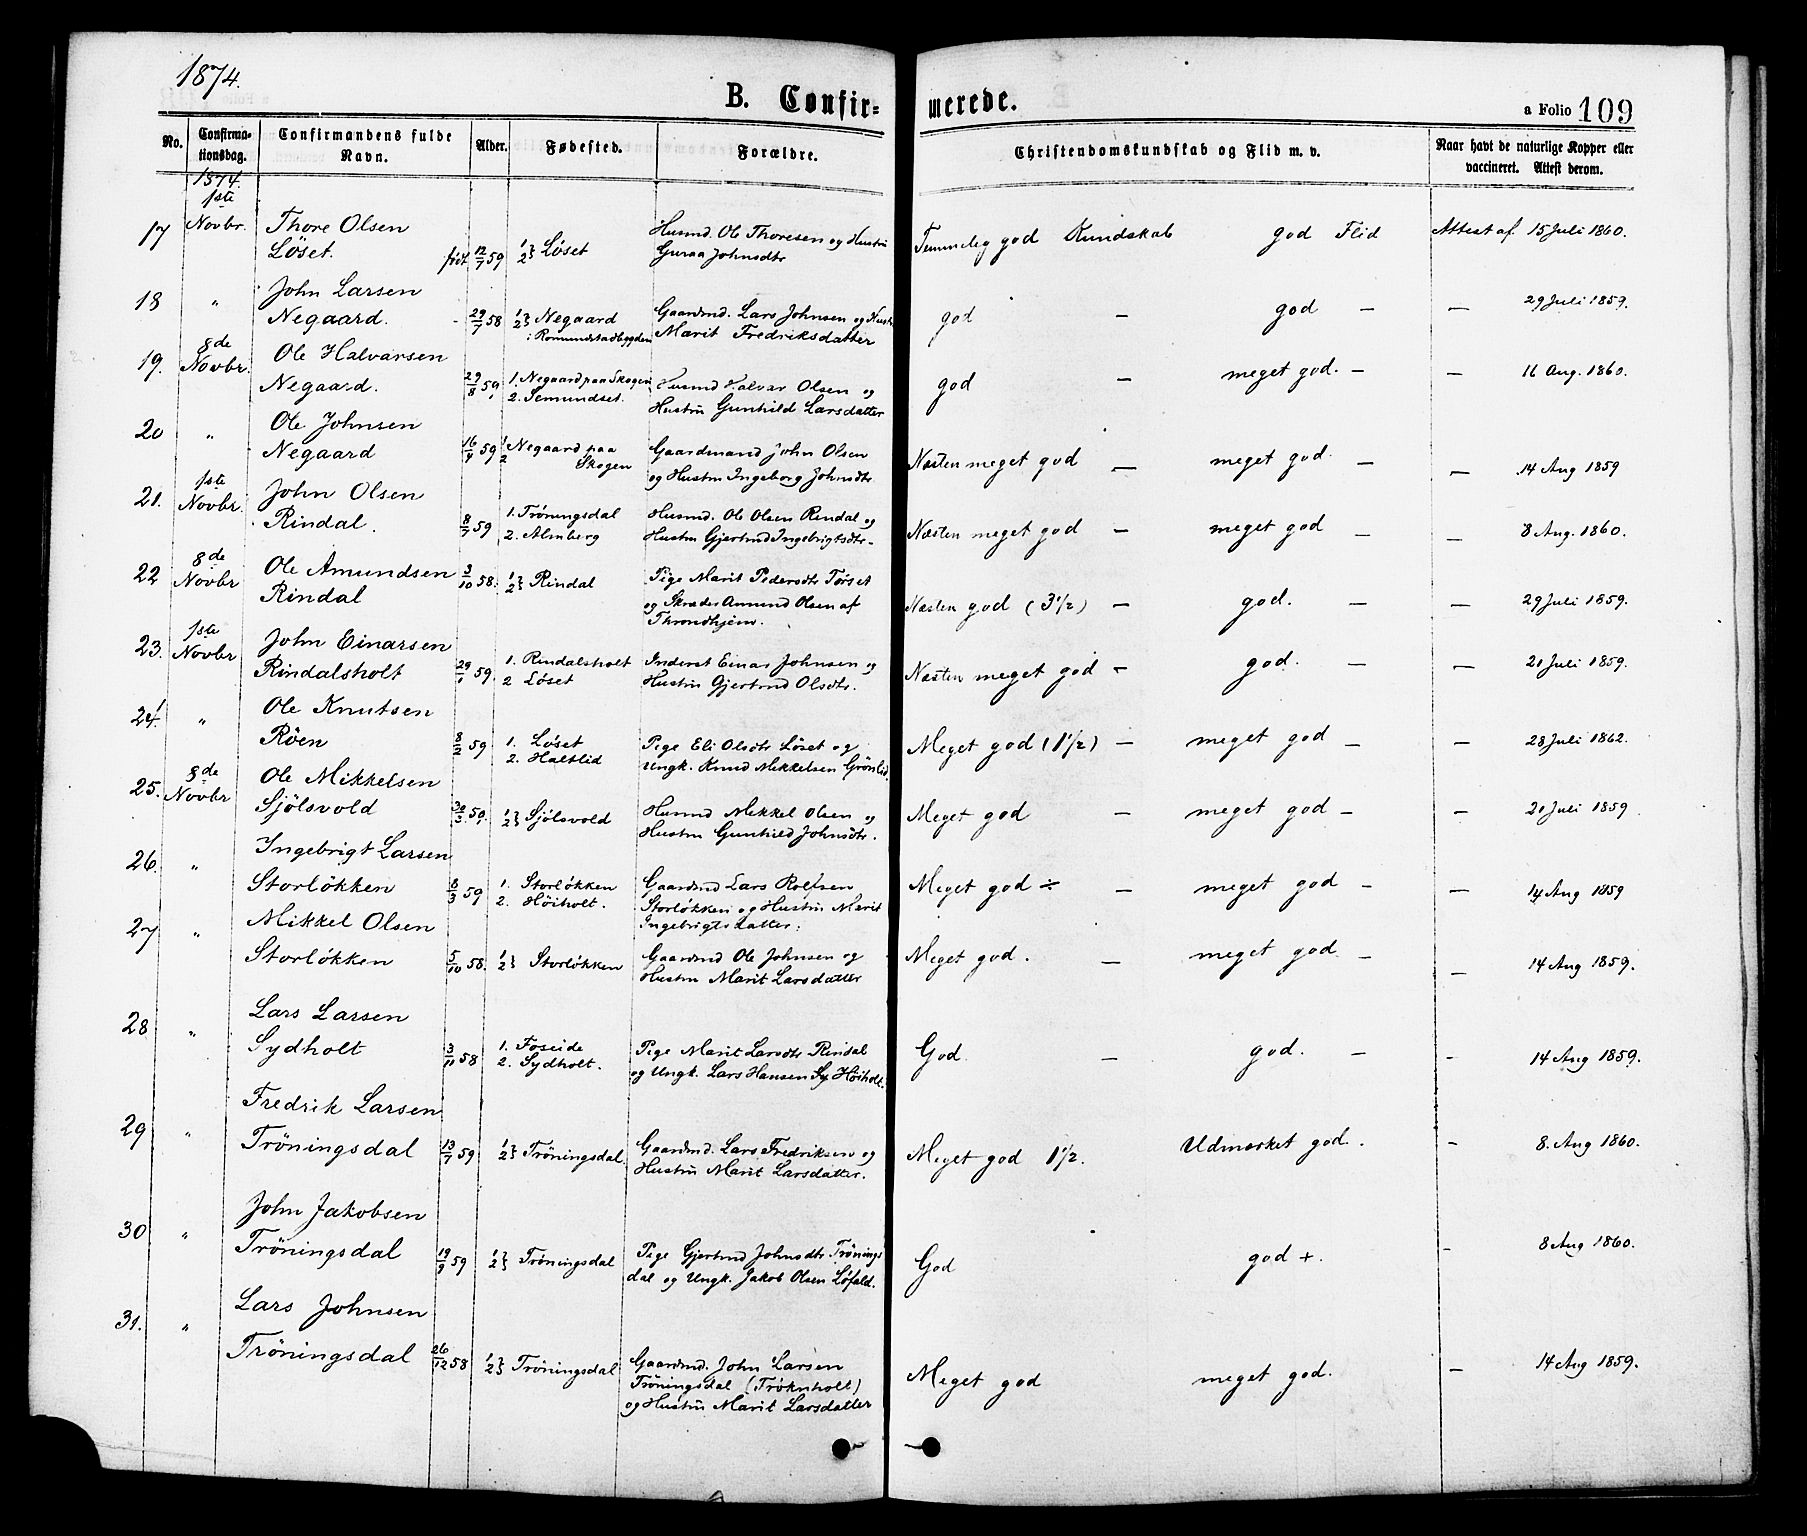 1874.
B. Confir-
merede.
a Folio 109
No.
Confirma-
tionsdag.
Confirmandens fulde
Navn.
Alder.
Fødested.
Forældre.
Christendomskundskab og Flid m. v.
Naar havt de naturlige Kopper eller
vaccineret. Attest derom.
1874.
1ste
17 Novbr. Thore Olsen
Löset. födt 12/7 59 1/2} Löset Husmd. Ole Thoresen og Hustru
Guraa Johnsdtr Temmelig god Kundskab god Flid Attest af 15 Juli 1860.
18 " John Larsen
Negaard. - 29/7 58 1/2} Negaard
: Romundstadbygden Gaardmd. Lars Johnsen og Hustr
Marit Fredriksdatter god — god — — 29 Juli 1859.
8de
19. Novbr. Ole Halvarsen
Negaard. 29/8 59 1. Negaard paa Skogen
2. Semundset. Husmd Halvar Olsen og
Hustru Gunhild Larsdatter god — meget god. — — 16 Aug. 1860.
20 " Ole Johnsen
Negaard 16/4 59 1/2 Negaard paa
Skogen Gaardmand John Olsen
og Hustru Ingeborg Johnsdtr Næsten meget god — meget god. — — 14 Aug 1859
1ste
21. Novbr. John Olsen
Rindal. 8/7 59 1. Tröningsdal
2. Almberg Husmd. Ole Olsen Rindal og
Hustru Gjertrud Ingebrigtsdtr. Næsten meget god — meget god — — 8 Aug. 1860.
8de
22 Novbr Ole Amundsen
Rindal 3/10 58. 1/2} Rindal Pige Marit Pedersdtr Törset
og Skræder Amund Olsen af
Throndhjem. Næsten god (3 1/2) — god. — — 29 Juli 1859.
1ste
23. Novbr John Einarsen
Rindalsholt 29/1 59. 1. Rindalsholt
2 Löset Inderst Einar Johnsen og
Hustru Gjertrud Olsdtr. Næsten meget god — god. — — 21 Juli 1859.
24. " Ole Knutsen
Röen 8/2 59 1. Löset
2. Haltlid Pige Eli Olsdtr Löset og
Ungk. Knud Mikkelsen Grönlid. Meget god (1 1/2) — meget god — — 28 Juli 1862.
8de
25. Novbr Ole Mikkelsen
Sjölsvold 30/3 59. 1/2} Sjölsvold Husmd Mikkel Olsen og
Hustru Gunhild Johnsdtr. Meget god — meget god — — 21 Juli 1859
26. " Ingebrigt Larsen
Storlökken 8/3 59 1. Storlökken
2. Höiholt. Gaardmd Lars Rolfsen
Storlökken og Hustru Marit
Ingebrigtsdatter. Meget god ÷ — meget god — — 14 Aug 1859
27 " Mikkel Olsen
Storlökken 5/10 58. 1/2} Storlökken Gaardmd Ole Johnsen og
Hustru Marit Larsdatter Meget god. — meget god — — 14 Aug 1859.
28 " Lars Larsen
Sydholt 3/11 58 1. Foseide
2. Sydholt. Pige Marit Larsdtr Rindal
og Ungk. Lars Hansen Sy Höiholt. God. — god. — — 14 Aug 1859.
29 " Fredrik Larsen
Tröningsdal 13/7 59 1/2} Tröningsdal. Gaardmd. Lars Fredriksen og
Hustru Marit Larsdatter. Meget god 1 1/2. Udmærket god. — 8. Aug 1860.
30 " John Jakobsen
Tröningsdal 19/9 59 1/2} Tröningsdal Pige Gjertrud Johnsdtr Trönings
dal og Ungk. Jakob Olsen Löfald. God god +. — 8 Aug 1860.
31. " Lars Johnsen
Tröningsdal 26/12 58 1/2} Tröningsdal Gaardmd. John Larsen
Tröningsdal (Tröknholt)
og Hustru Marit Larsdatter Meget god meget god. — 14 Aug 1859.